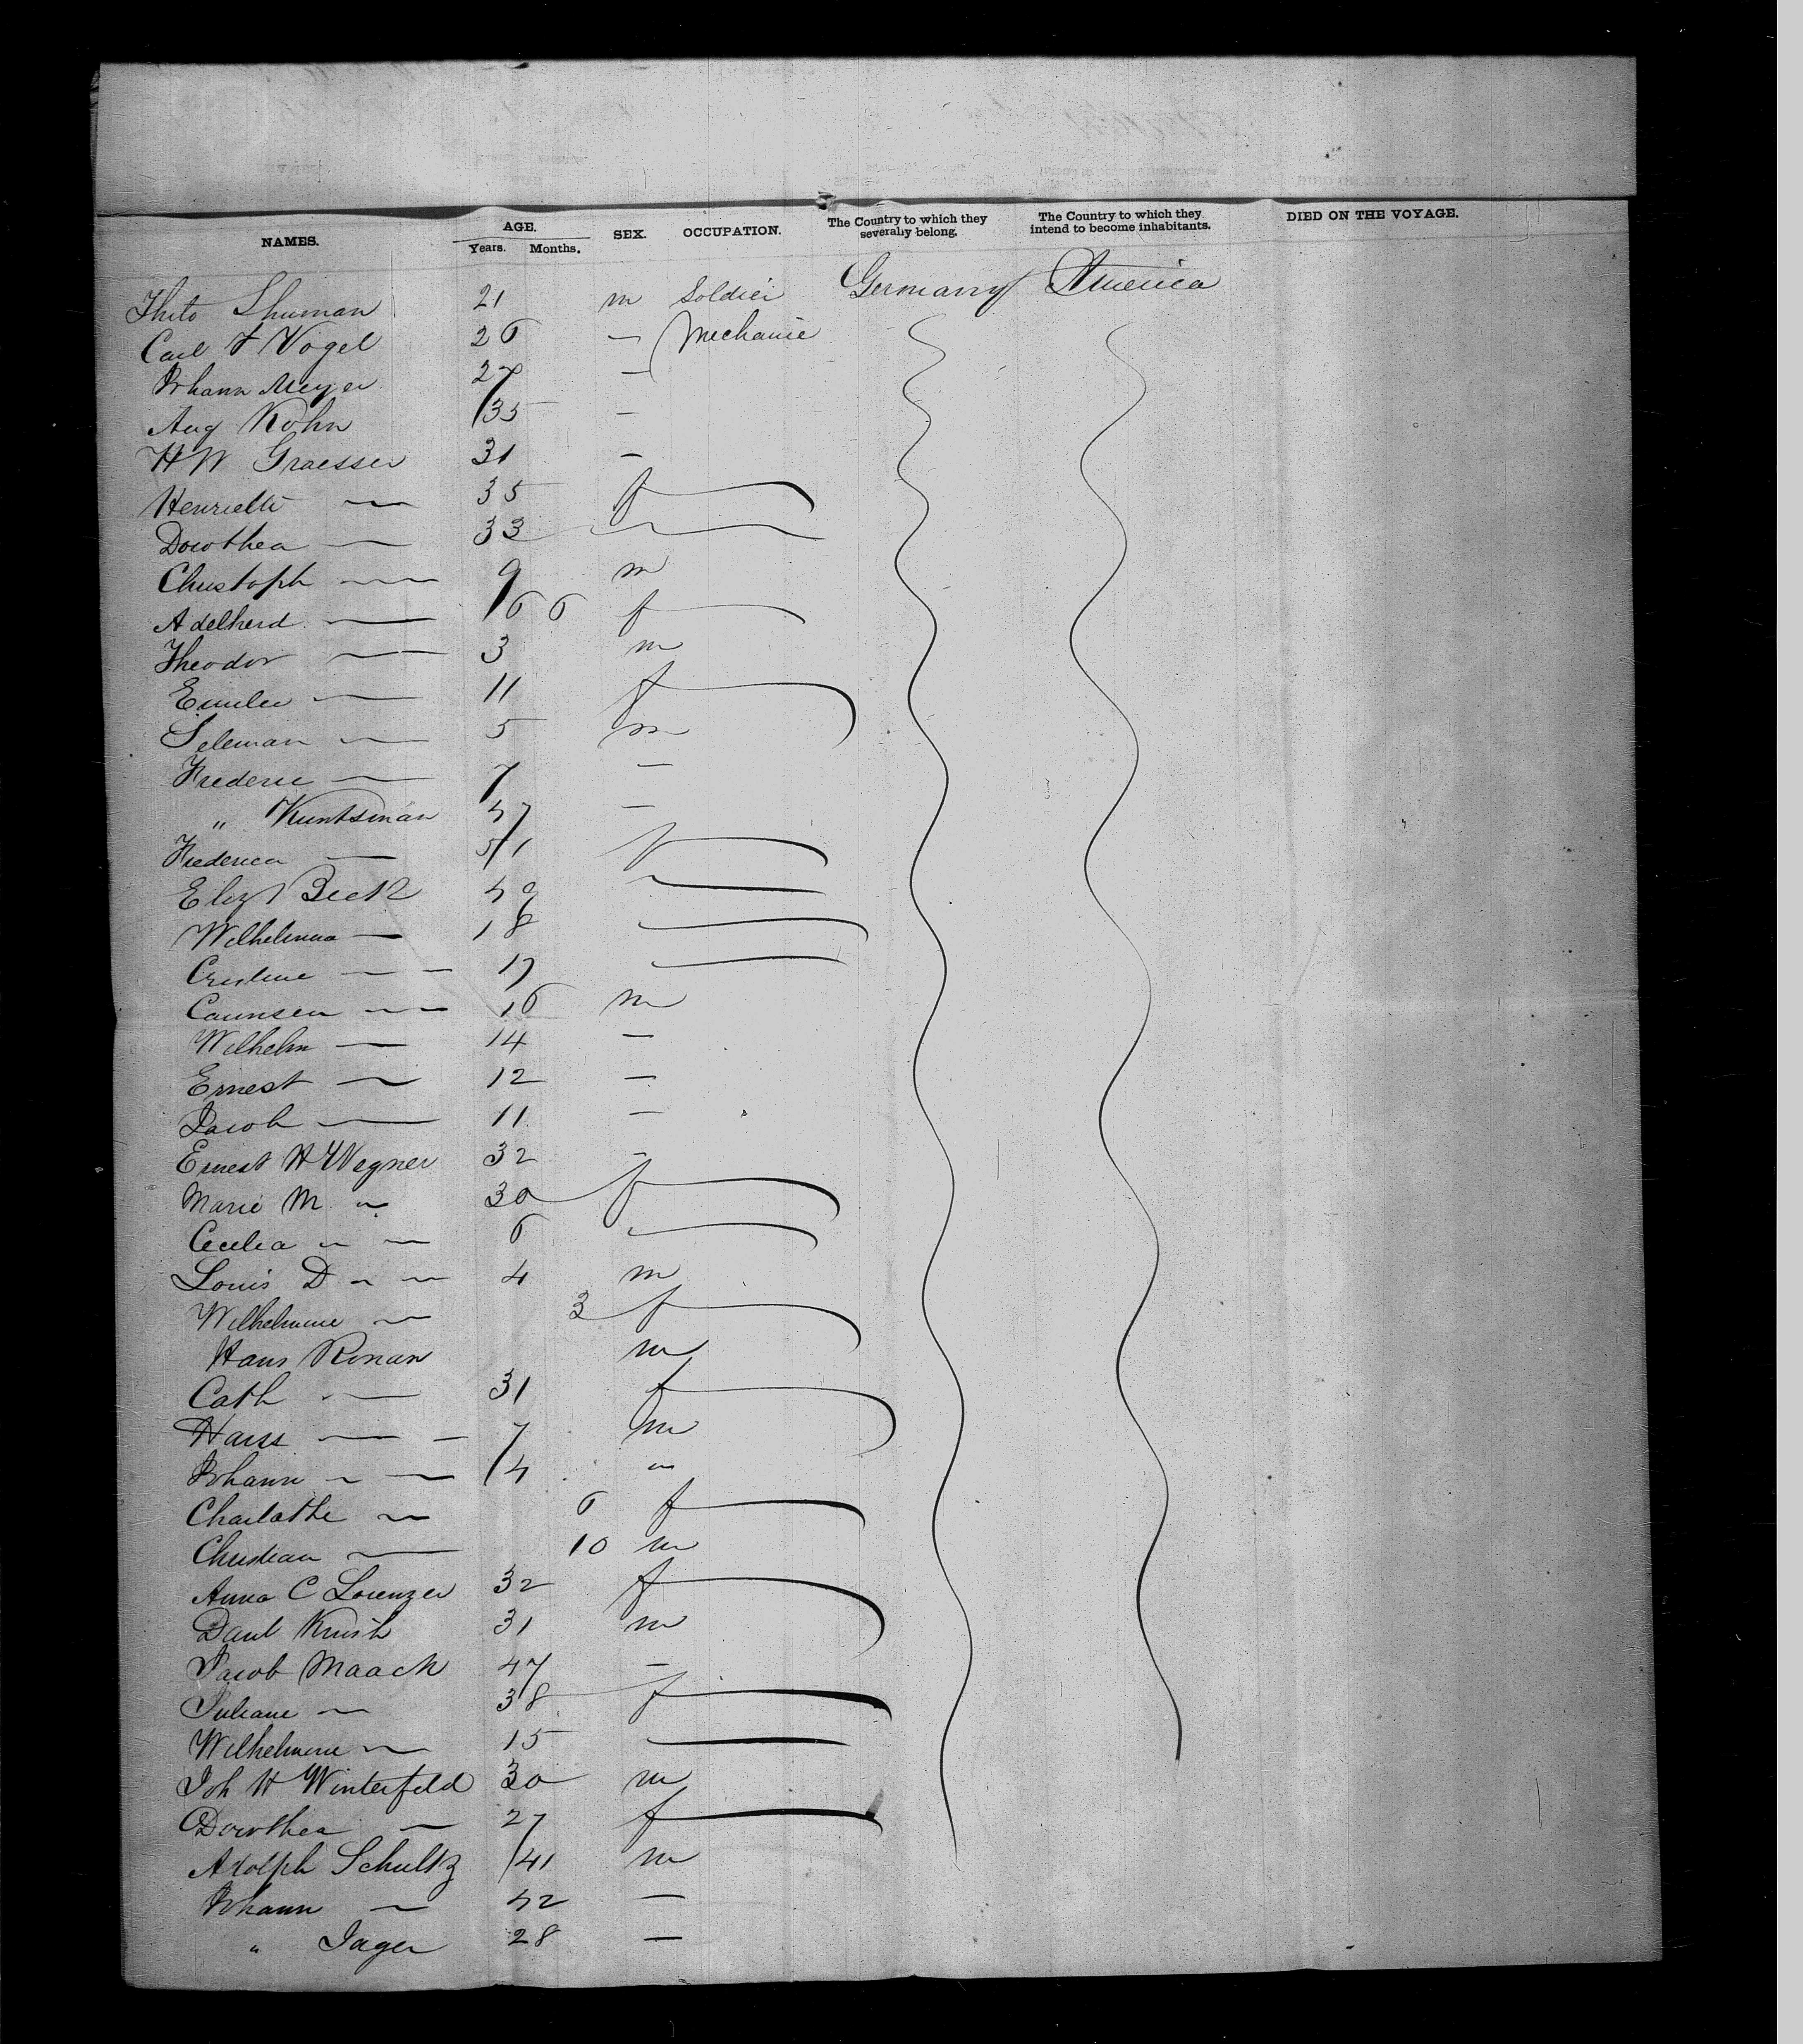 NAMES. AGE. Years. Months. SEX. OCCUPATION. The Country to which they severally belong. The Country to which they intend to become inhabitants. DIED ON THE VOYAGE.
Thilo Shuman 21 m Soldier Germany America
Carl F Vogel 26 — Mechanic
Johann Meyer 27 —
Aug Kohn 35 —
H W Graesser 31 —
Henriette — 35 f
Dorothea — 33
Christoph — 9 m
Adelheid — 6 6 f
Theodor — 3 m
Emilie — 11 f
Seleman — 5 m
Frederic — 7 —
" Kuntsman 47 —
Frederica — 51 f
Eliz Beck 49
Wilhelmina — 18
Cristine — — 17
— — 16 m
Wilhelm — 14 —
Ernest — 12 —
Jacob — 11 —
Ernest H Wegner 32 —
Marie M — 30 f
Cecelia — — 6
Louis D — — 4 m
Wilhelmine — 3 f
Hans Roman m
Cath — 31 f
Hans — — 7 m
Johann — — 4 "
Charlotte — 6 f
Christian — 10 m
Anna C Lorenzer 32 f
Danl Krush 31 m
Jacob Maack 47 —
Juliane — 38 f
Wilhelmine — 15
Joh H Winterfeld 30 m
Dorothea — 27 f
Adolph Schultz 41 m
Johann — 42 —
" Jager 28 —